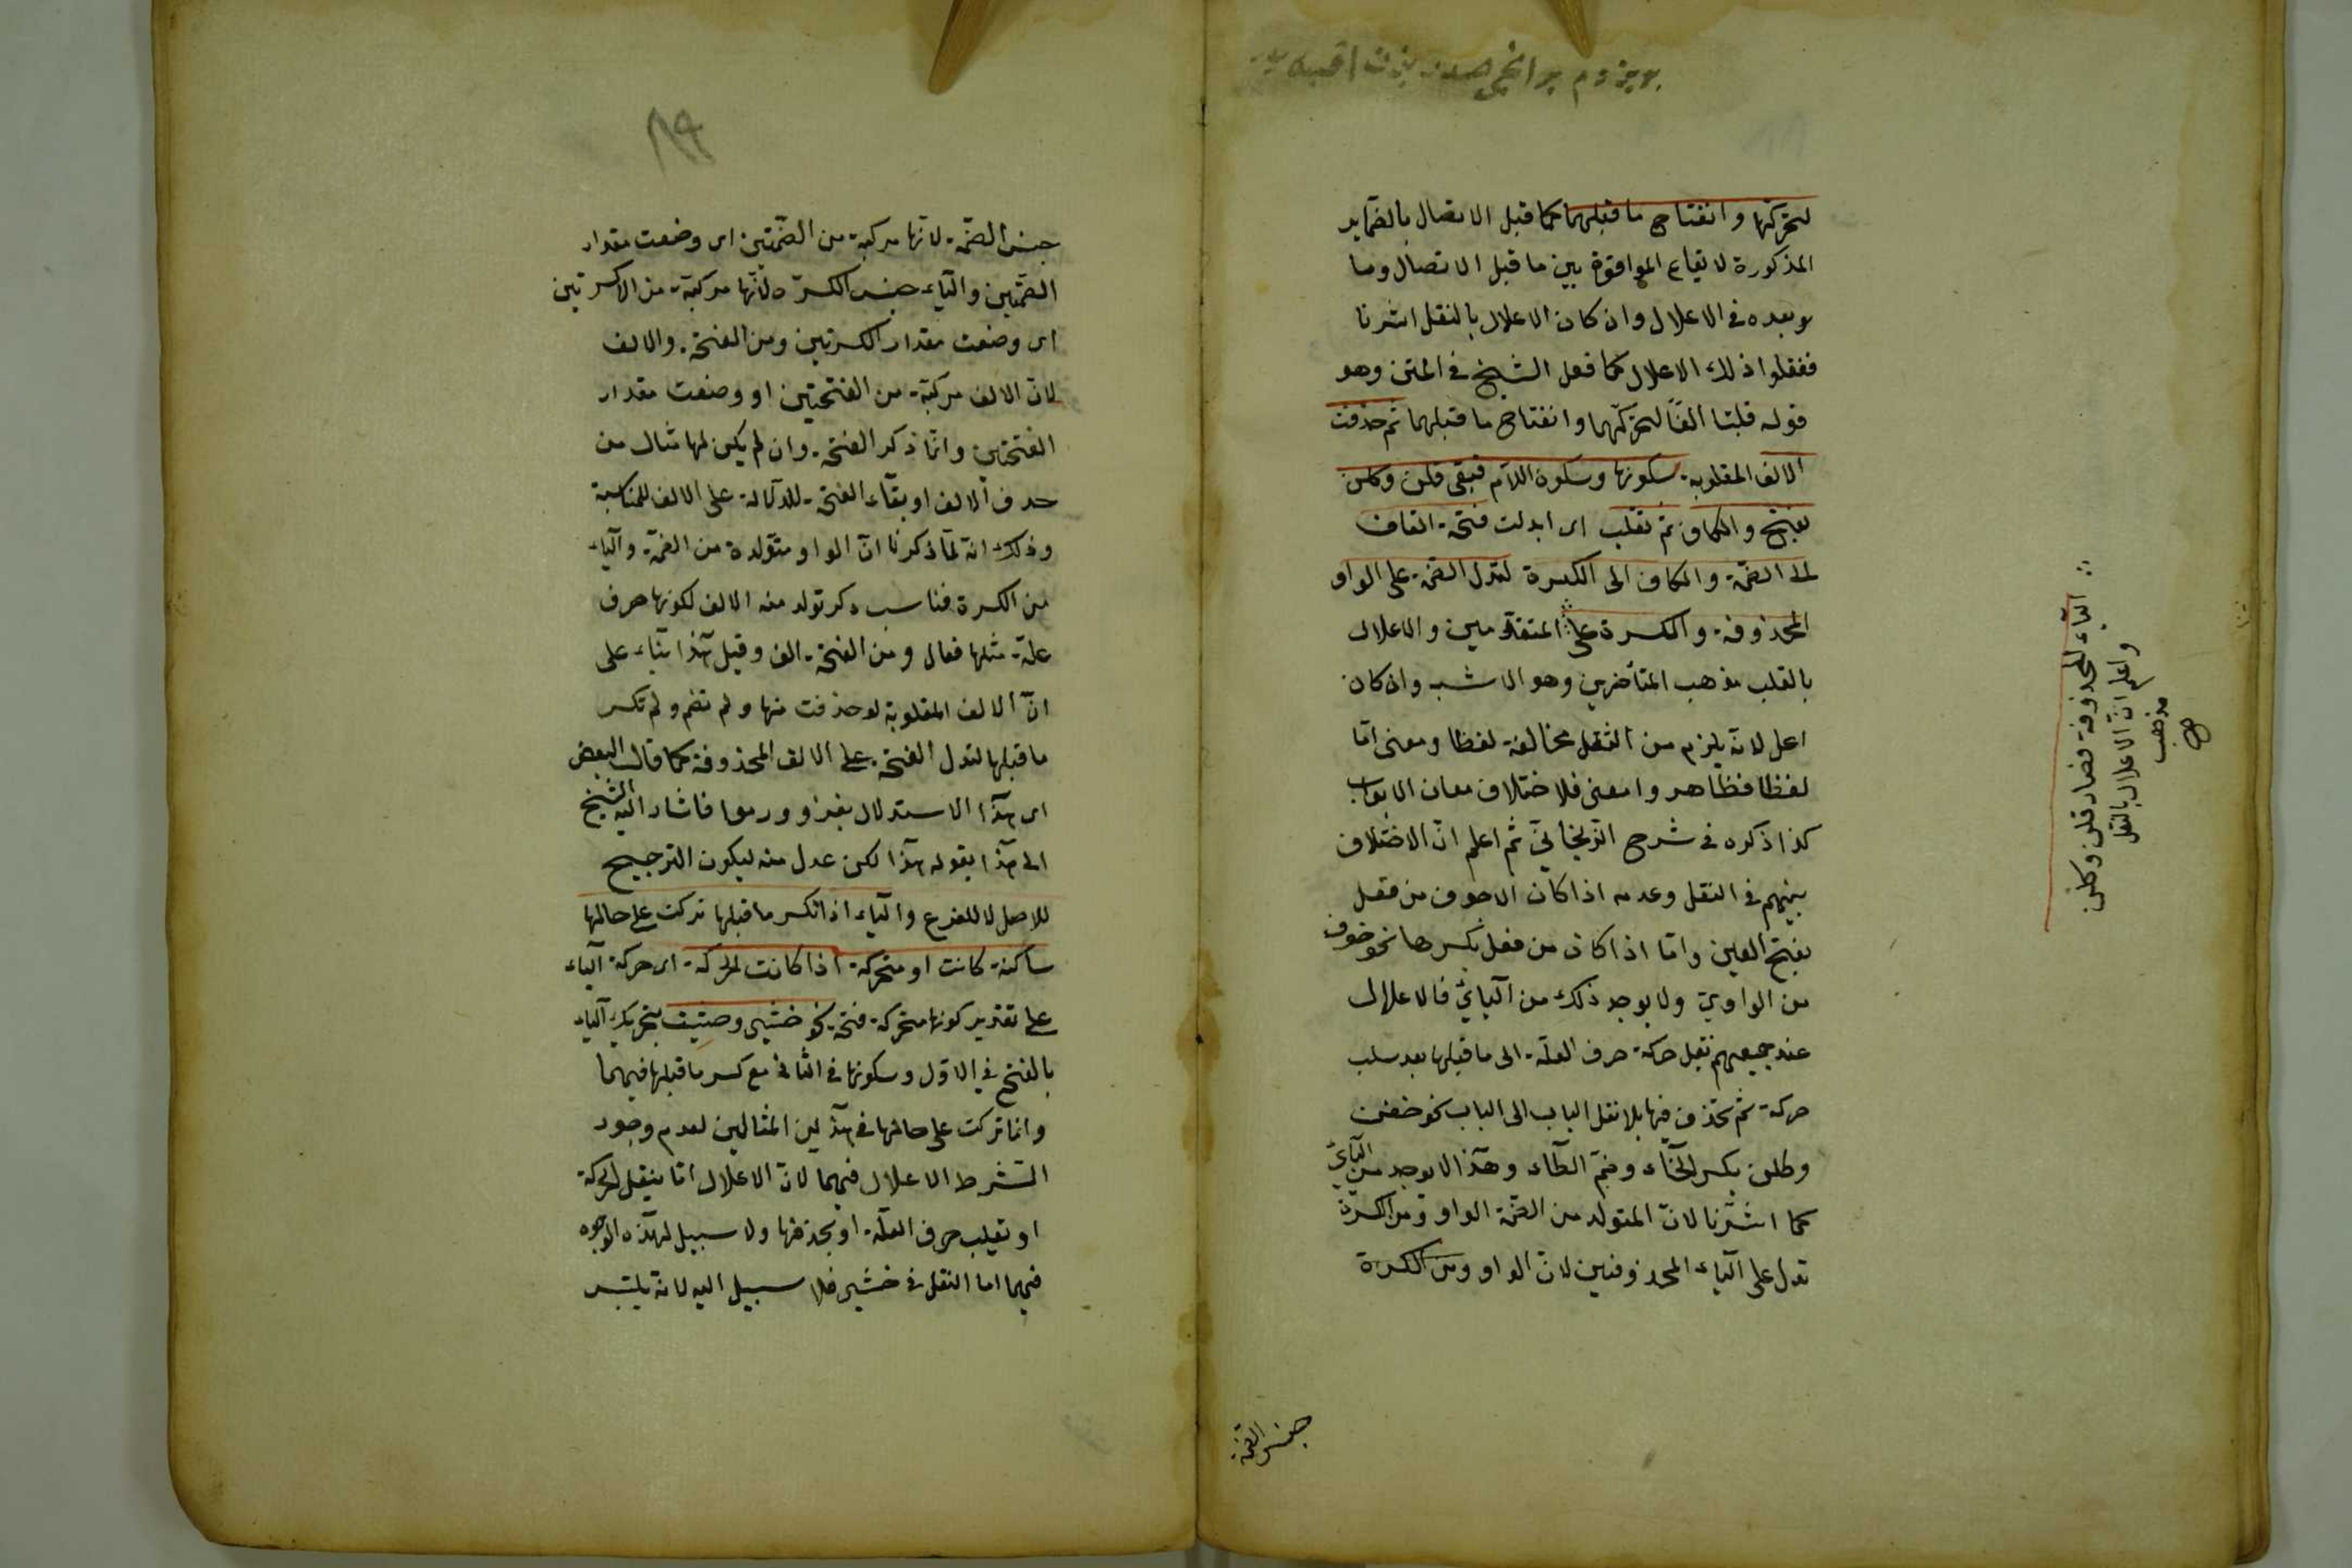 لتحركها وانفتاح ما قبلهما كما قبل الاتصال بالضماير
المذكورة لايقاع الموافقة بين ما قبل الاتصال وما
وبعده في الاعلال وان كان الاعلال بالنقل اشرنا
ففقلوا ذلك الاعلال كما فعل الشيخ في المتن وهو
قوله قلبتا الفًا لتحركهما وانفتاح ما قبلهما ثم حذفت
الالف المقلوبة سكونها وسكون اللام فبقى قلن وكلن
بفتح والكاف ثم تقلب اى ابدلت فتحة القاف
الى الضمة والكاف الى الكسرة لتدل الضمة على الواو
المحذوفة والكسرة على المتقدمين والاعلال
بالقلب مذهب المتأخرين وهو الاشبه وان كان
اعل لانه يلزم من النقل مخالفة لفظا ومعنى امّا
لفظا فظاهر واما معنى فلاختلاف معان الابواب
كذا ذكره في شرح الزنجاني ثم اعلم ان الاختلاف
بينهم في النقل وعدمه اذا كان الاجوف من فعل
بفتح العين وامّا اذا كان من فعل بكسرها نحو خوف
من الواوي ولا يوجد ذلك من اليائي فالاعلال
عند جميعهم نقل حركة حرف العلّة الى ما قبلها بعد سلب
حركة ثم تحذف فيها بلا نقل الباب الى الباب نحو خفن
وطلن بكسر الخاء وضم الطاء وهذا لا يوجد من اليائي
كما اشرنا لان المتولد من الضمة الواو ومن الكسرة
تدل على الياء المحذوفين لان الواو ومن الكسرة
∴ الياء المحذوفة فصار قلن وكلن
واعلم انّ الاعلال بالنقل
مذهب
صح
جنس الضمة
١٩٩
جنس الضمّة لانها مركبة من الضمّتين اى وضعت مقدار
الضمّتين والياء جنس الكسرة لانّها مركبّة من الكسرتين
اى وضعت مقدار الكسرتين ومن الفتحة والالف
لانّ الالف مركبّة من الفتحتين او وضعت مقدار
الفتحتين وانّما ذكر الفتحة وان لم يكن لها مثال من
حدف الالف او بقاء الفتحة للدلالة على الالف للمناسبة
وذلك انه لمّا ذكرنا انّ الواو متولدة من الضمّة والياء
من الكسرة فناسب ذكر تولد منه الالف لكونها حرف
علّة مثلها فقال ومن الفتحة الف وقيل هذا بناء على
انّ الالف المقلوبة لو حذفت منها ولم تضم ولم تكسر
ما قبلها لتدل الفتحة على الالف المحذوفة كما قال البعض
اى هذا الاستدلال بغزوا ورموا فاشار اليه الشيخ
الى هذا بقوله هذا لكن عدل منه ليكون الترجيح
للاصل لا للفرع والياء اذا انكسر ما قبلها تركت على حالها
ساكنة كانت او متحركة اذا كانت الحركة اى حركة الياء
على تقدير كونها متحركة فتحة نحو خشي وخشيت بتحريك الياء
بالفتح في الاوّل وسكونها في الثاني مع كسر ما قبلها فيهما
وانما تركت على حالها في هذين المثالين لعدم وجود
الشرط الاعلال فيهما لانّ الاعلال امّا بنقل الحركة
او تقليب حرف العلّة او بحذفها ولا سبيل لهذه الوجوه
فيهما اما النقل في خشي فلا سبيل اليه لانه يلتبس